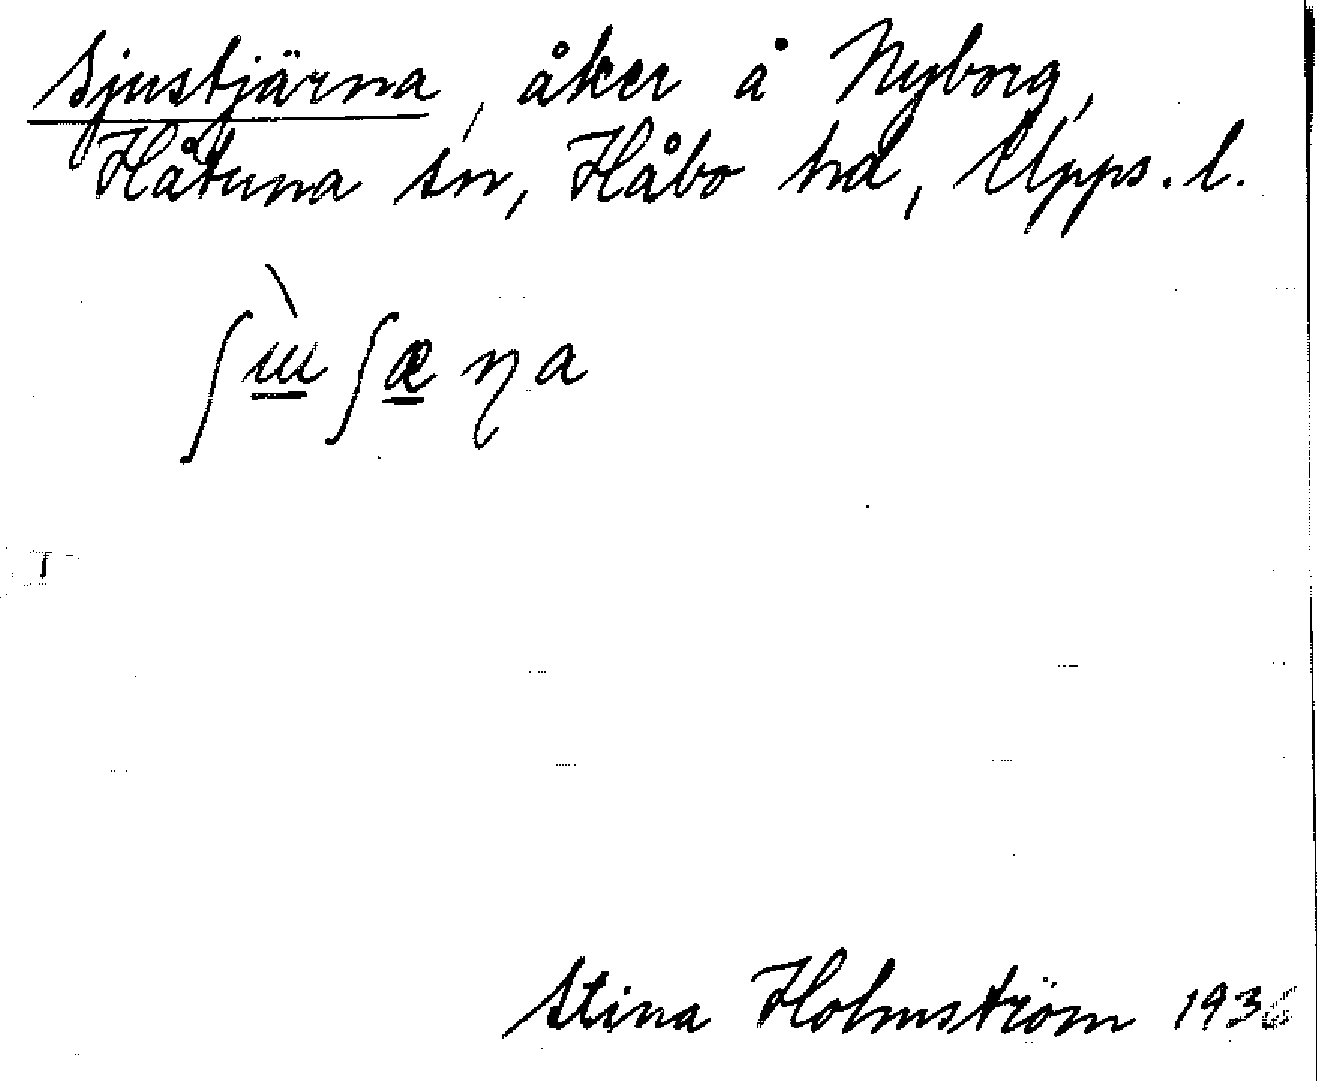 Sjustjärna, åker å Nyborg,
Håtuna sn, Håbo hd, Upps. l.
ʃɯ̲̀ʃæ̲ɳa
Stina Holmström 1936